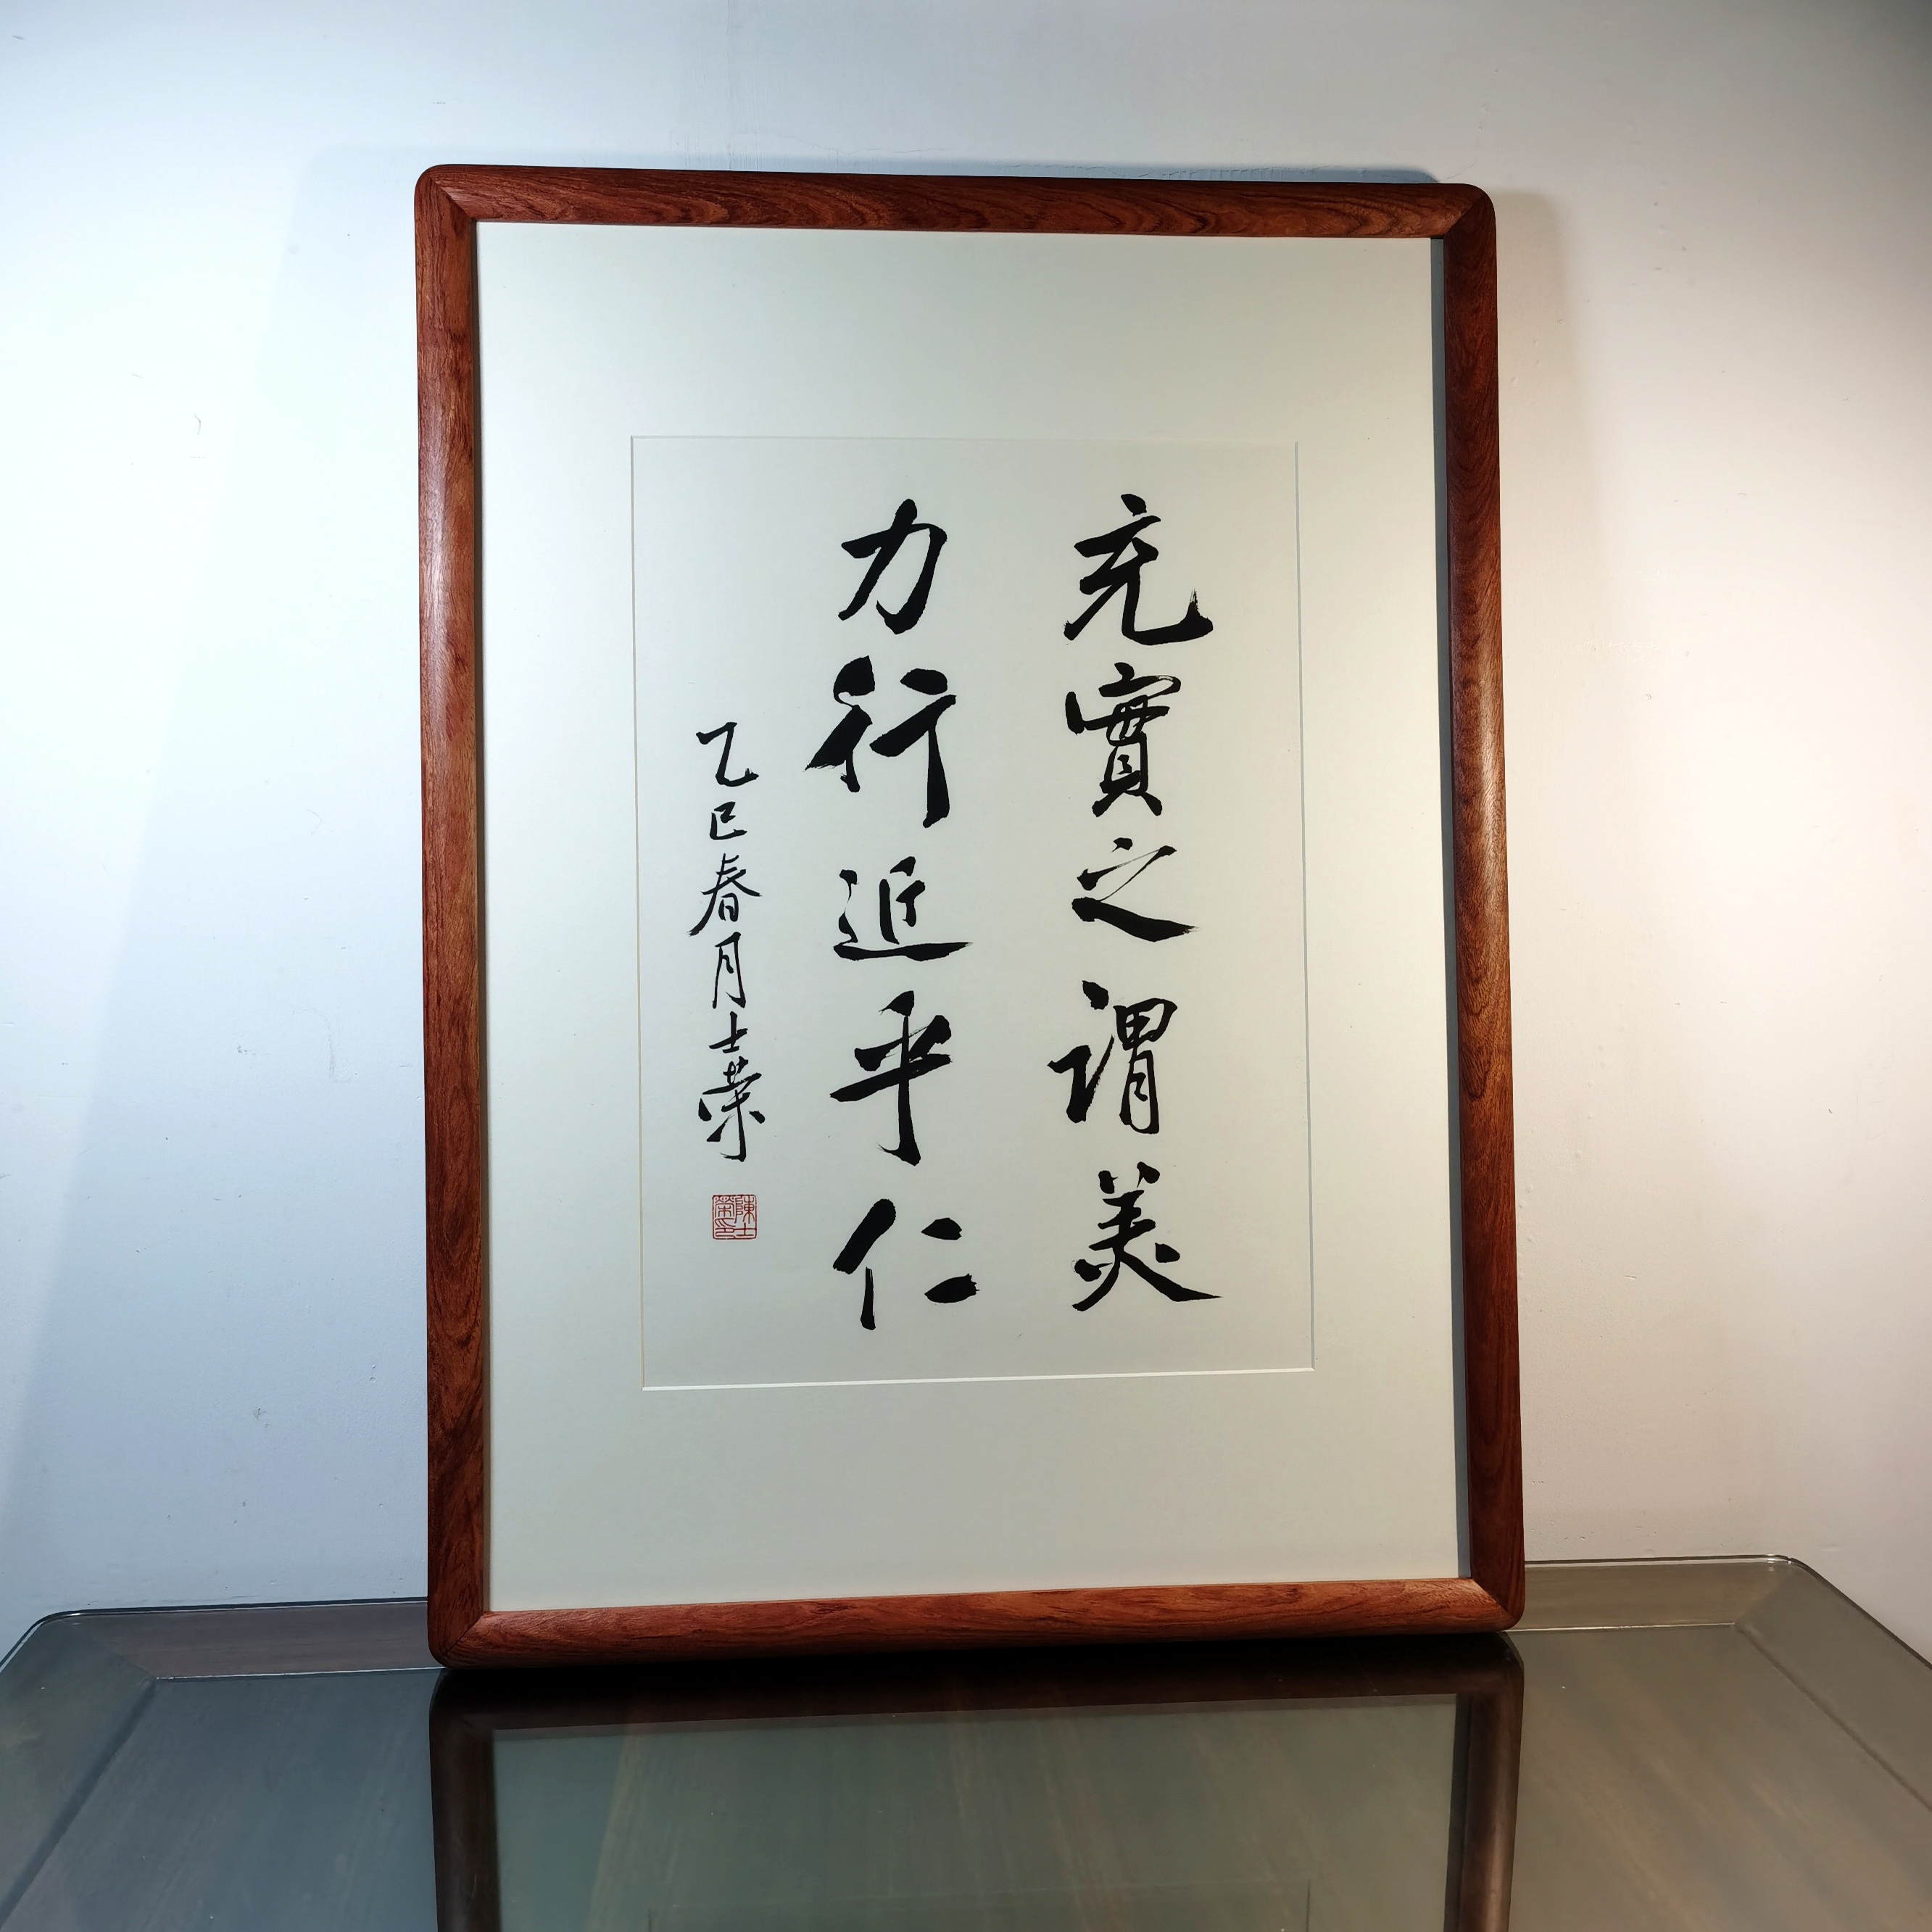 充實之谓美
力行近乎仁
乙巳春月士荣
陳士
榮印